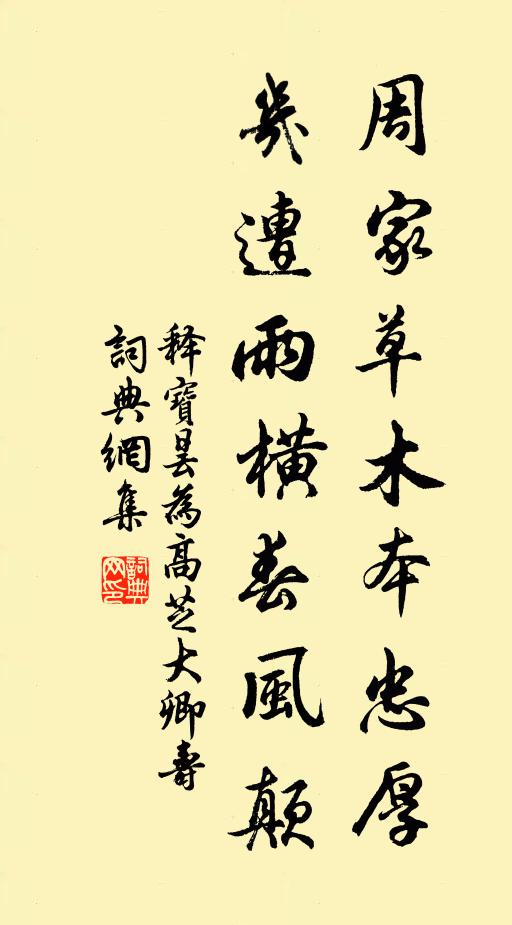 周家草木本忠厚
幾遭雨橫春風顛
释寶曇為高芝大卿壽
詞典網集
詞典
网印